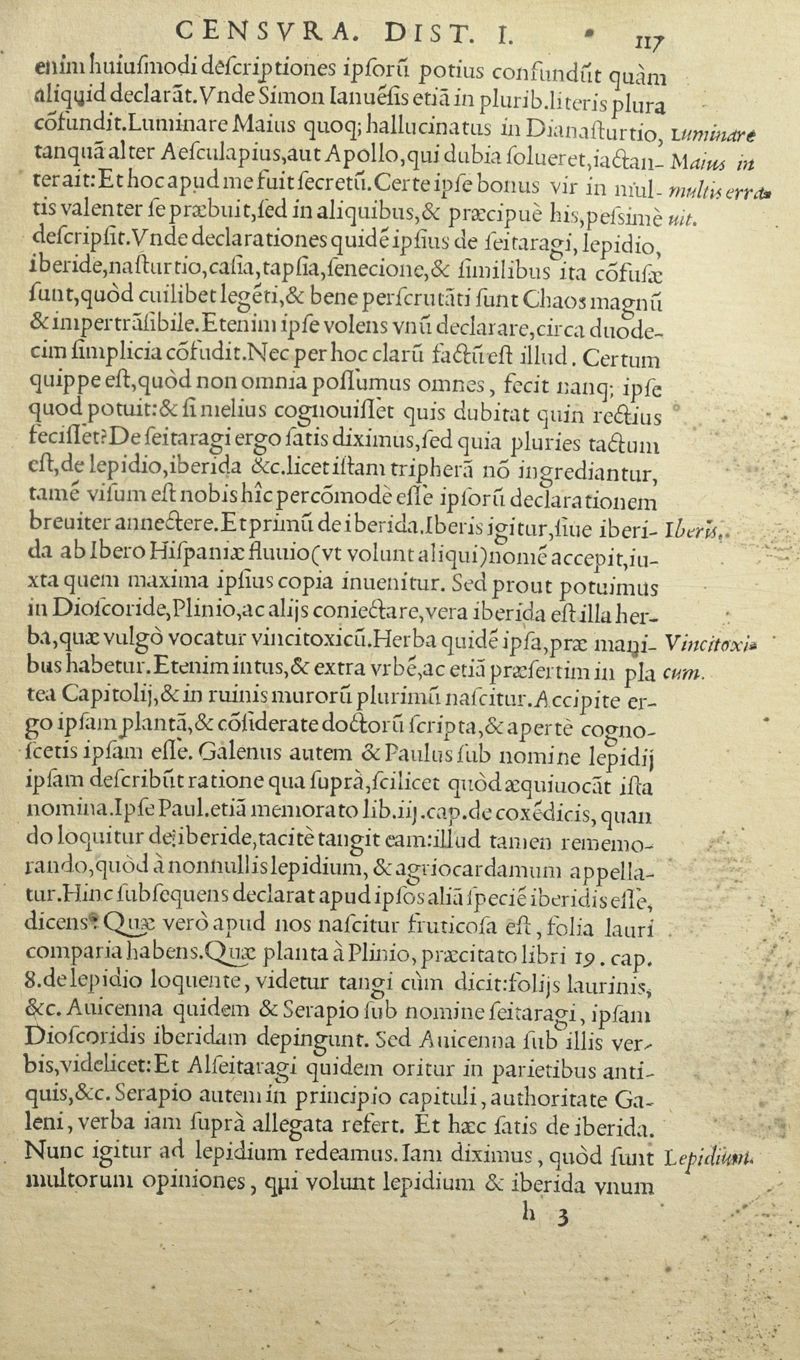 CENSVRA. DIST. I. 117
enim huiuſmodi deſcriptiones ipſorū potius confundūt quàm
aliquid declarāt.Vnde Simon Ianuēſis etiā in plurib.literis plura
cōfundit.Luminare Maius quoq; hallucinatus in Dianaſturtio, Luminare
tanquā alter Aeſculapius,aut Apollo,qui dubia ſolueret,iactan- Maius in
terait:Et hoc apud me fuit ſecretū.Certe ipſe bonus vir in mul- multis erra-
tis valenter ſe præbuit,ſed in aliquibus,& præcipuè his,peſsimè uit.
deſcripſit.Vnde declarationes quidē ipſius de ſeitaragi, lepidio,
iberide,naſturtio,caſia,tapſia,ſenecione,& ſimilibus ita cōfuſæ
ſunt,quòd cuilibet legēti,& bene perſcrutāti ſunt Chaos magnū
& impertrāſibile.Etenim ipſe volens vnū declarare,circa duode-
cim ſimplicia cōfudit.Nec per hoc clarū factū eſt illud. Certum
quippe eſt,quòd non omnia poſſumus omnes, fecit nanq; ipſe
quod potuit:& ſi melius cognouiſſet quis dubitat quin rectius
feciſſet?De ſeitaragi ergo ſatis diximus,ſed quia pluries tactum
eſt,de lepidio,iberida &c.licet iſtam tripherā nō ingrediantur,
tamē viſum eſt nobis hîc percōmodè eſſe ipſorū declarationem
breuiter annectere.Et primū de iberida.Iberis igitur,ſiue iberi- Iberis.
da ab Ibero Hiſpaniæ fluuio(vt volunt aliqui)nomē accepit,iu-
xta quem maxima ipſius copia inuenitur. Sed prout potuimus
in Dioſcoride,Plinio,ac alijs coniectare,vera iberida eſt illa her-
ba,quæ vulgò vocatur vincitoxicū.Herba quidē ipſa,præ mani- Vincitoxi-
bus habetur.Etenim intus,& extra vrbē,ac etiā præſertim in pla cum.
tea Capitolij,& in ruinis murorū plurimū naſcitur.Accipite er-
go ipſam plantā,& cōſiderate doctorū ſcripta,& apertè cogno-
ſcetis ipſam eſſe. Galenus autem & Paulus ſub nomine lepidij
ipſam deſcribūt ratione qua ſuprà,ſcilicet quòd æquiuocāt iſta
nomina.Ipſe Paul.etiā memorato lib.iij.cap.de coxēdicis, quan
do loquitur de iberide,tacitè tangit eam:illud tamen rememo-
rando,quòd à nonnullis lepidium, & agriocardamum appella-
tur.Hinc ſubſequens declarat apud ipſos aliā ſpeciē iberidis eſſe,
dicens: Quæ verò apud nos naſcitur fruticoſa eſt, folia lauri
comparia habens.Quæ planta à Plinio, præcitato libri 19. cap.
8.de lepidio loquente, videtur tangi cùm dicit:folijs laurinis,
&c. Auicenna quidem & Serapio ſub nomine ſeitaragi, ipſam
Dioſcoridis iberidam depingunt. Sed Auicenna ſub illis ver-
bis,videlicet:Et Alſeitaragi quidem oritur in parietibus anti-
quis,&c. Serapio autem in principio capituli, authoritate Ga-
leni, verba iam ſuprà allegata refert. Et hæc ſatis de iberida.
Nunc igitur ad lepidium redeamus. Iam diximus, quòd ſunt Lepidium.
multorum opiniones, qui volunt lepidium & iberida vnum
h 3